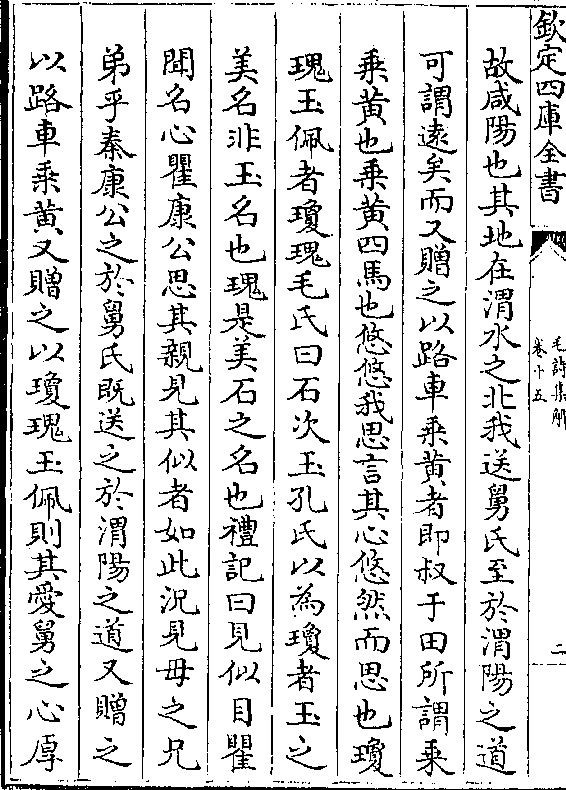 欽定四庫全書
毛詩集解
卷十五
二
故咸陽也其地在渭水之北我送舅氏至於渭陽之道
可謂遠矣而又贈之以路車乘黃者即叔于田所謂乘
乘黃也乘黃四馬也悠悠我思言其心悠然而思也瓊
瑰玉佩者瓊瑰毛氏曰石次玉孔氏以為瓊者玉之
美名非玉名也瑰是美石之名也禮記曰見似目瞿
聞名心瞿康公思其親見其似者如此況見母之兄
弟乎秦康公之於舅氏既送之於渭陽之道又贈之
以路車乘黃又贈之以瓊瑰玉佩則其愛舅之心厚